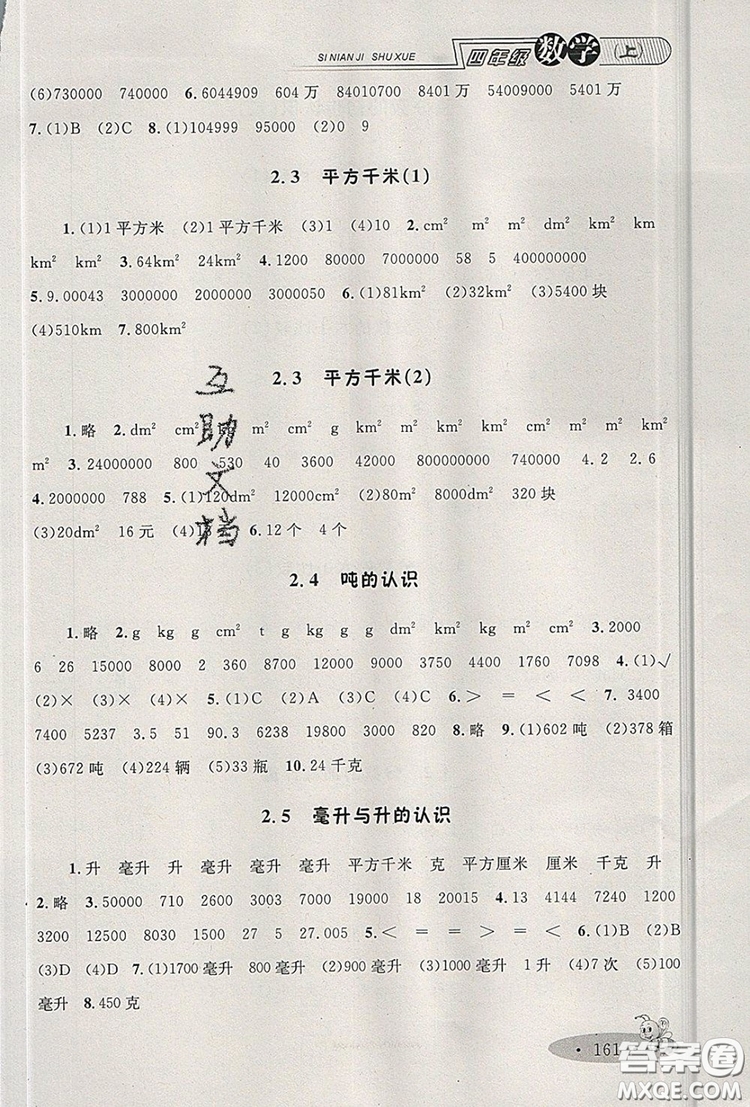 SI NIAN JI SHU XUE 四年级 数学 (上)
(6)730000 740000 6.6044909 604万 84010700 8401万 54009000 5401万
7.(1)B (2)C 8.(1)104999 95000 (2)0 9
2.3 平方千米(1)
1.(1)1平方米 (2)1平方千米 (3)1 (4)10 2.cm² m² m² dm² km² km
km² km² 3.64km² 24km² 4.1200 80000 7000000 58 5 400000000
5.9.00043 3000000 2000000 3000050 6.(1)81km² (2)2km² (3)5400块
(4)510km 7.800km²
2.3 平方千米(2)
1.略 2.dm² cm² kg m² cm² g km² m² km² cm² m² km²
m² 3.24000000 800 530 40 3600 42000 800000000 740000 4.2 2.6
4.2000000 788 5.(1)120dm² 12000cm² (2)80m² 8000dm² 320块
(3)20dm² 16元 (4)18 6.12个 4个
2.4 吨的认识
1.略 2.g kg g cm² t g kg g g dm² km² kg cm² 3.2000
6 26 15000 8000 2 360 8700 12000 4520 4000 1760 7098 4.(1)√
(2)× (3)× (4)× 5.(1)C (2)A (3)C (4)C 6.> = < < 7.3400
7400 5237 3.5 51 90.3 6238 19800 3000 820 8.略 9.(1)602吨 (2)378箱
(3)672吨 (4)224辆 (5)33瓶 10.24千克
2.5 毫升与升的认识
1.升 毫升 升 毫升 毫升 毫升 平方千米 克 平方厘米 厘米 千克 升
2.略 3.50000 710 2600 37000 1900 18 20015 4.13 4144 7240 1200
3200 12500 5130 5200 27 27.005 5.< = = > = < 6.(1)B (2)B
(3)D (4)D 7.(1)1700毫升 800毫升 (2)900毫升 (3)1升 (4)7次 (5)100
毫升 8.450克
互助文档
· 161
答案圈
MXQE.COM